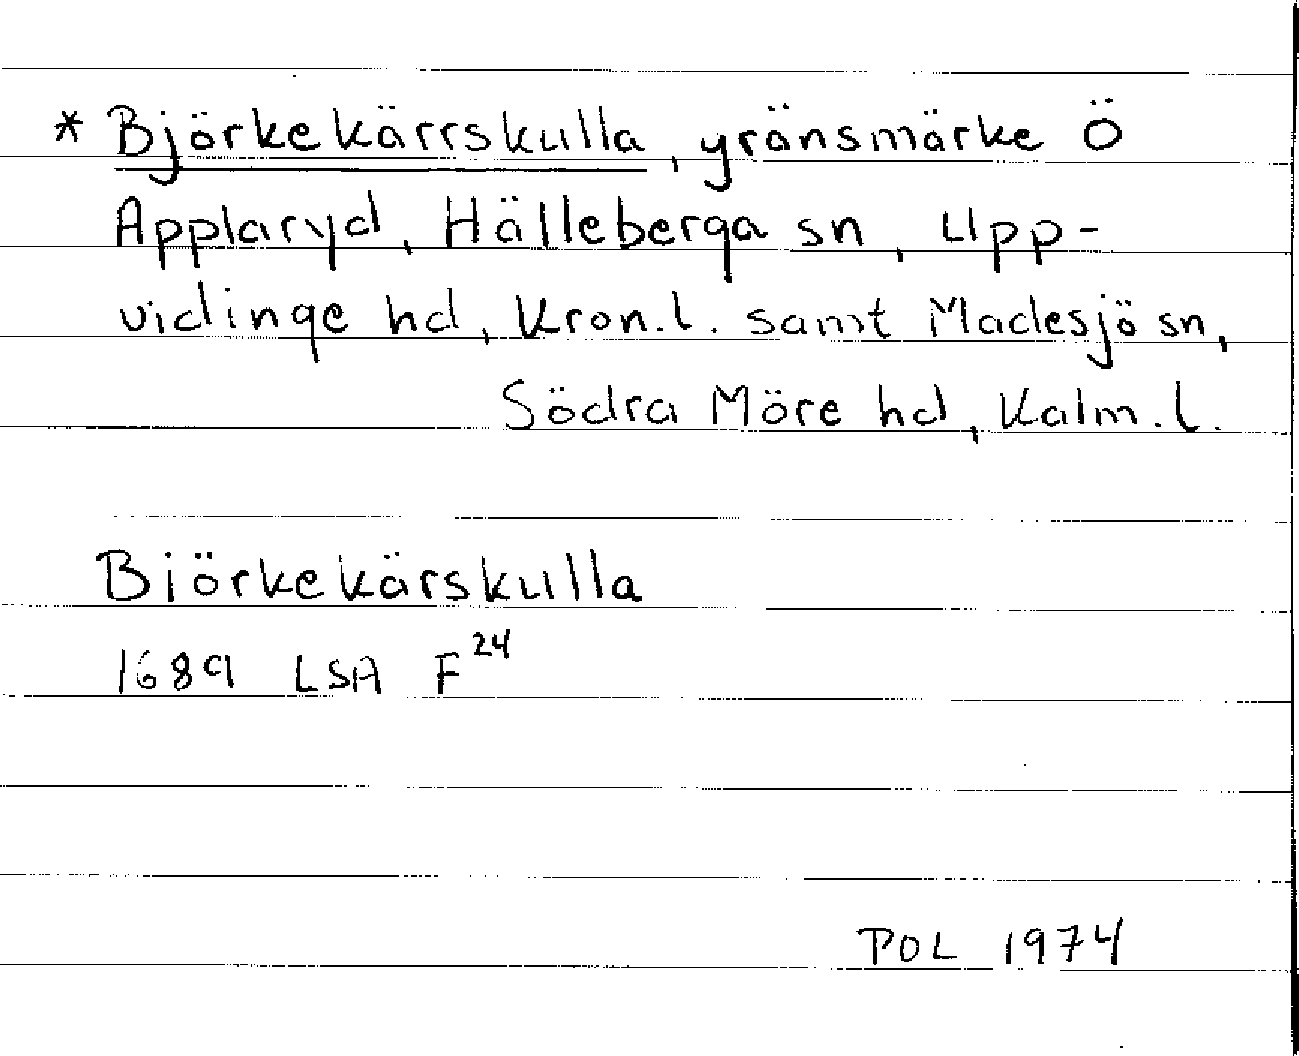 * Björkekärrskulla, gränsmärke Ö
Applaryd, Hälleberga sn, Upp-
vidinge hd, Kron.l. samt Madesjö sn,
Södra Möre hd, Kalm.l.
Biörkekärskulla
1689 LSA F24
POL 1974